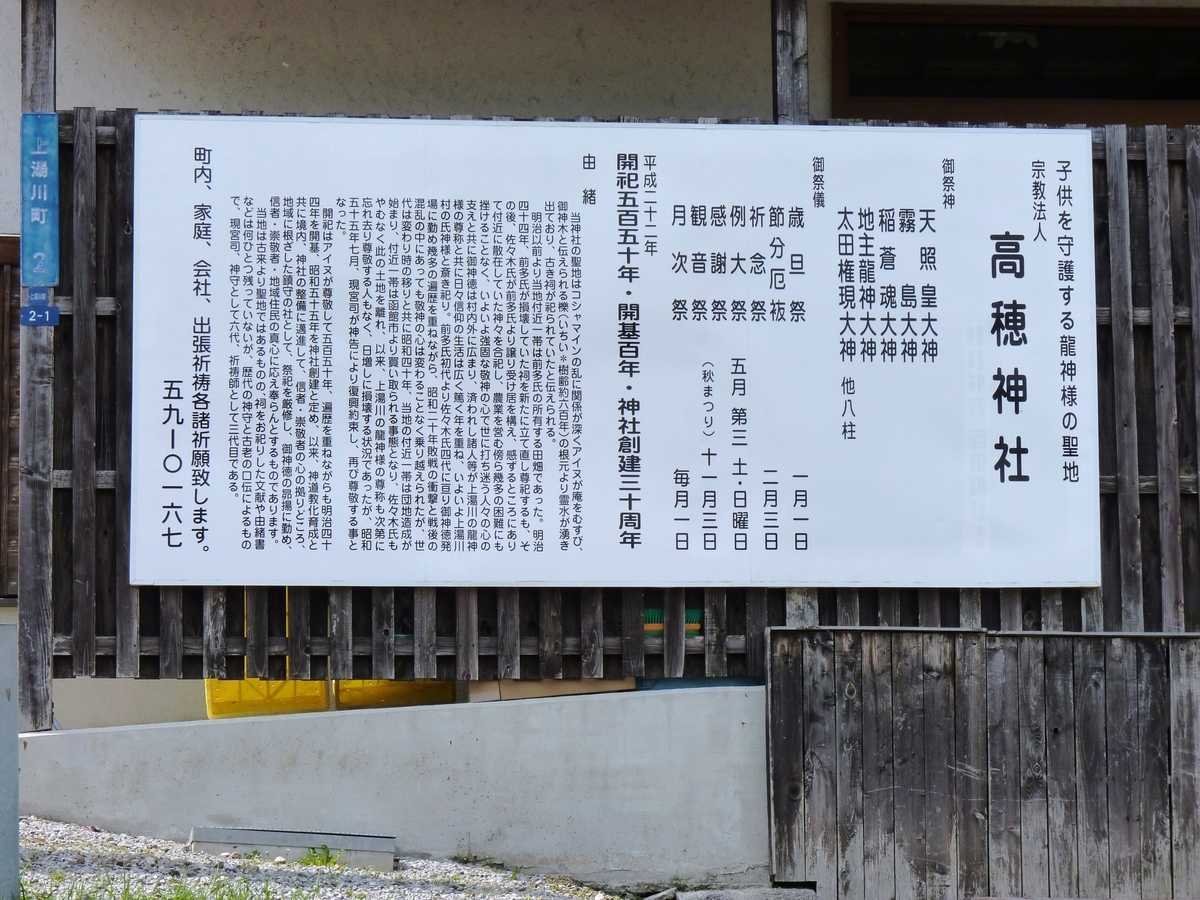 子供を守護する龍神様の聖地
宗教法人
高穂神社
御祭神
天照皇大神
霧島大神
稲蒼魂大神
地主龍神大神
太田権現大神 他八柱
御祭儀
歳旦祭 一月一日
節分厄祓 二月三日
祈念祭
例大祭 五月 第三 土・日曜日
感謝祭 (秋まつり) 十一月三日
観音祭
月次祭 毎月一日
平成二十二年
開祀五百五十年・開基百年・神社創建三十周年
由緒
当神社の聖地はコシャマインの乱に関係が深くアイヌが庵をむすび、
御神木と伝えられる櫟(いちい*樹齢約六百年)の根元より霊水が湧き
出ており、古き祠が祀られていたと伝えられる。
明治以前より当地付近一帯は前多氏の所有する田畑であった。明治
四十四年、前多氏が損壊していた祠を新たに立て直し尊祀するも、そ
の後、佐々木氏が前多氏より譲り受け居を構え、感ずるところにあり
て付近に散在していた神々を合祀し、農業を営む傍ら幾多の困難にも
挫けることなく、いよいよ強固な敬神の心で世に打ち迷う人々の心の
支えと共に御神徳は村内外に広まり、済われし諸人等が上湯川の龍神
様の尊称と共に日々信仰の生活は広く篤く年を重ね、いよいよ上湯川
村の氏神様と斎き祀り。前多氏初代より佐々木氏四代に亘り御神徳発
場に勤め幾多の遍歴を重ねながら、昭和二十年敗戦の衝撃と戦後の
混乱の中にあっても敬神の心は変わることなく乗り越えられたが、世
代は変わり時の移りと共に昭和四十年、当地の付近一帯は団地造成が
始まり、付近一帯は函館市より買い取られる事態となり、佐々木氏も
やむなく此の土地を離れ、以来、上湯川の龍神様の尊称も次第に
忘れ去り尊敬する人もなく、日増しに損壊する状況であったが、昭和
五十五年七月、現宮司が神告により復興約束し、再び尊敬する事と
なった。
開祀はアイヌが尊敬して五百五十年、遍歴を重ねながらも明治四十
四年を開基、昭和五十五年を神社創建と定め、以来、神道教化育成と
共に境内、神社の整備に邁進して、信者・崇敬者の心の拠りどころ、
地域に根ざした鎮守の社として、祭祀を厳修し、御神徳の昂揚に勤め、
信者・崇敬者・地域住民の真心に応え奉らんとするものであります。
当地は古来より聖地ではあるものの、祠をお祀りした文献や由緒書
などは何ひとつ残っていないが、歴代の神守と古老の口伝によるもの
で、現宮司、神守として六代、祈祷師として三代目である。
町内、家庭、会社、出張祈祷各諸祈願致します。
五九ー〇一六七
上湯川町
2
上湯川町
2-1